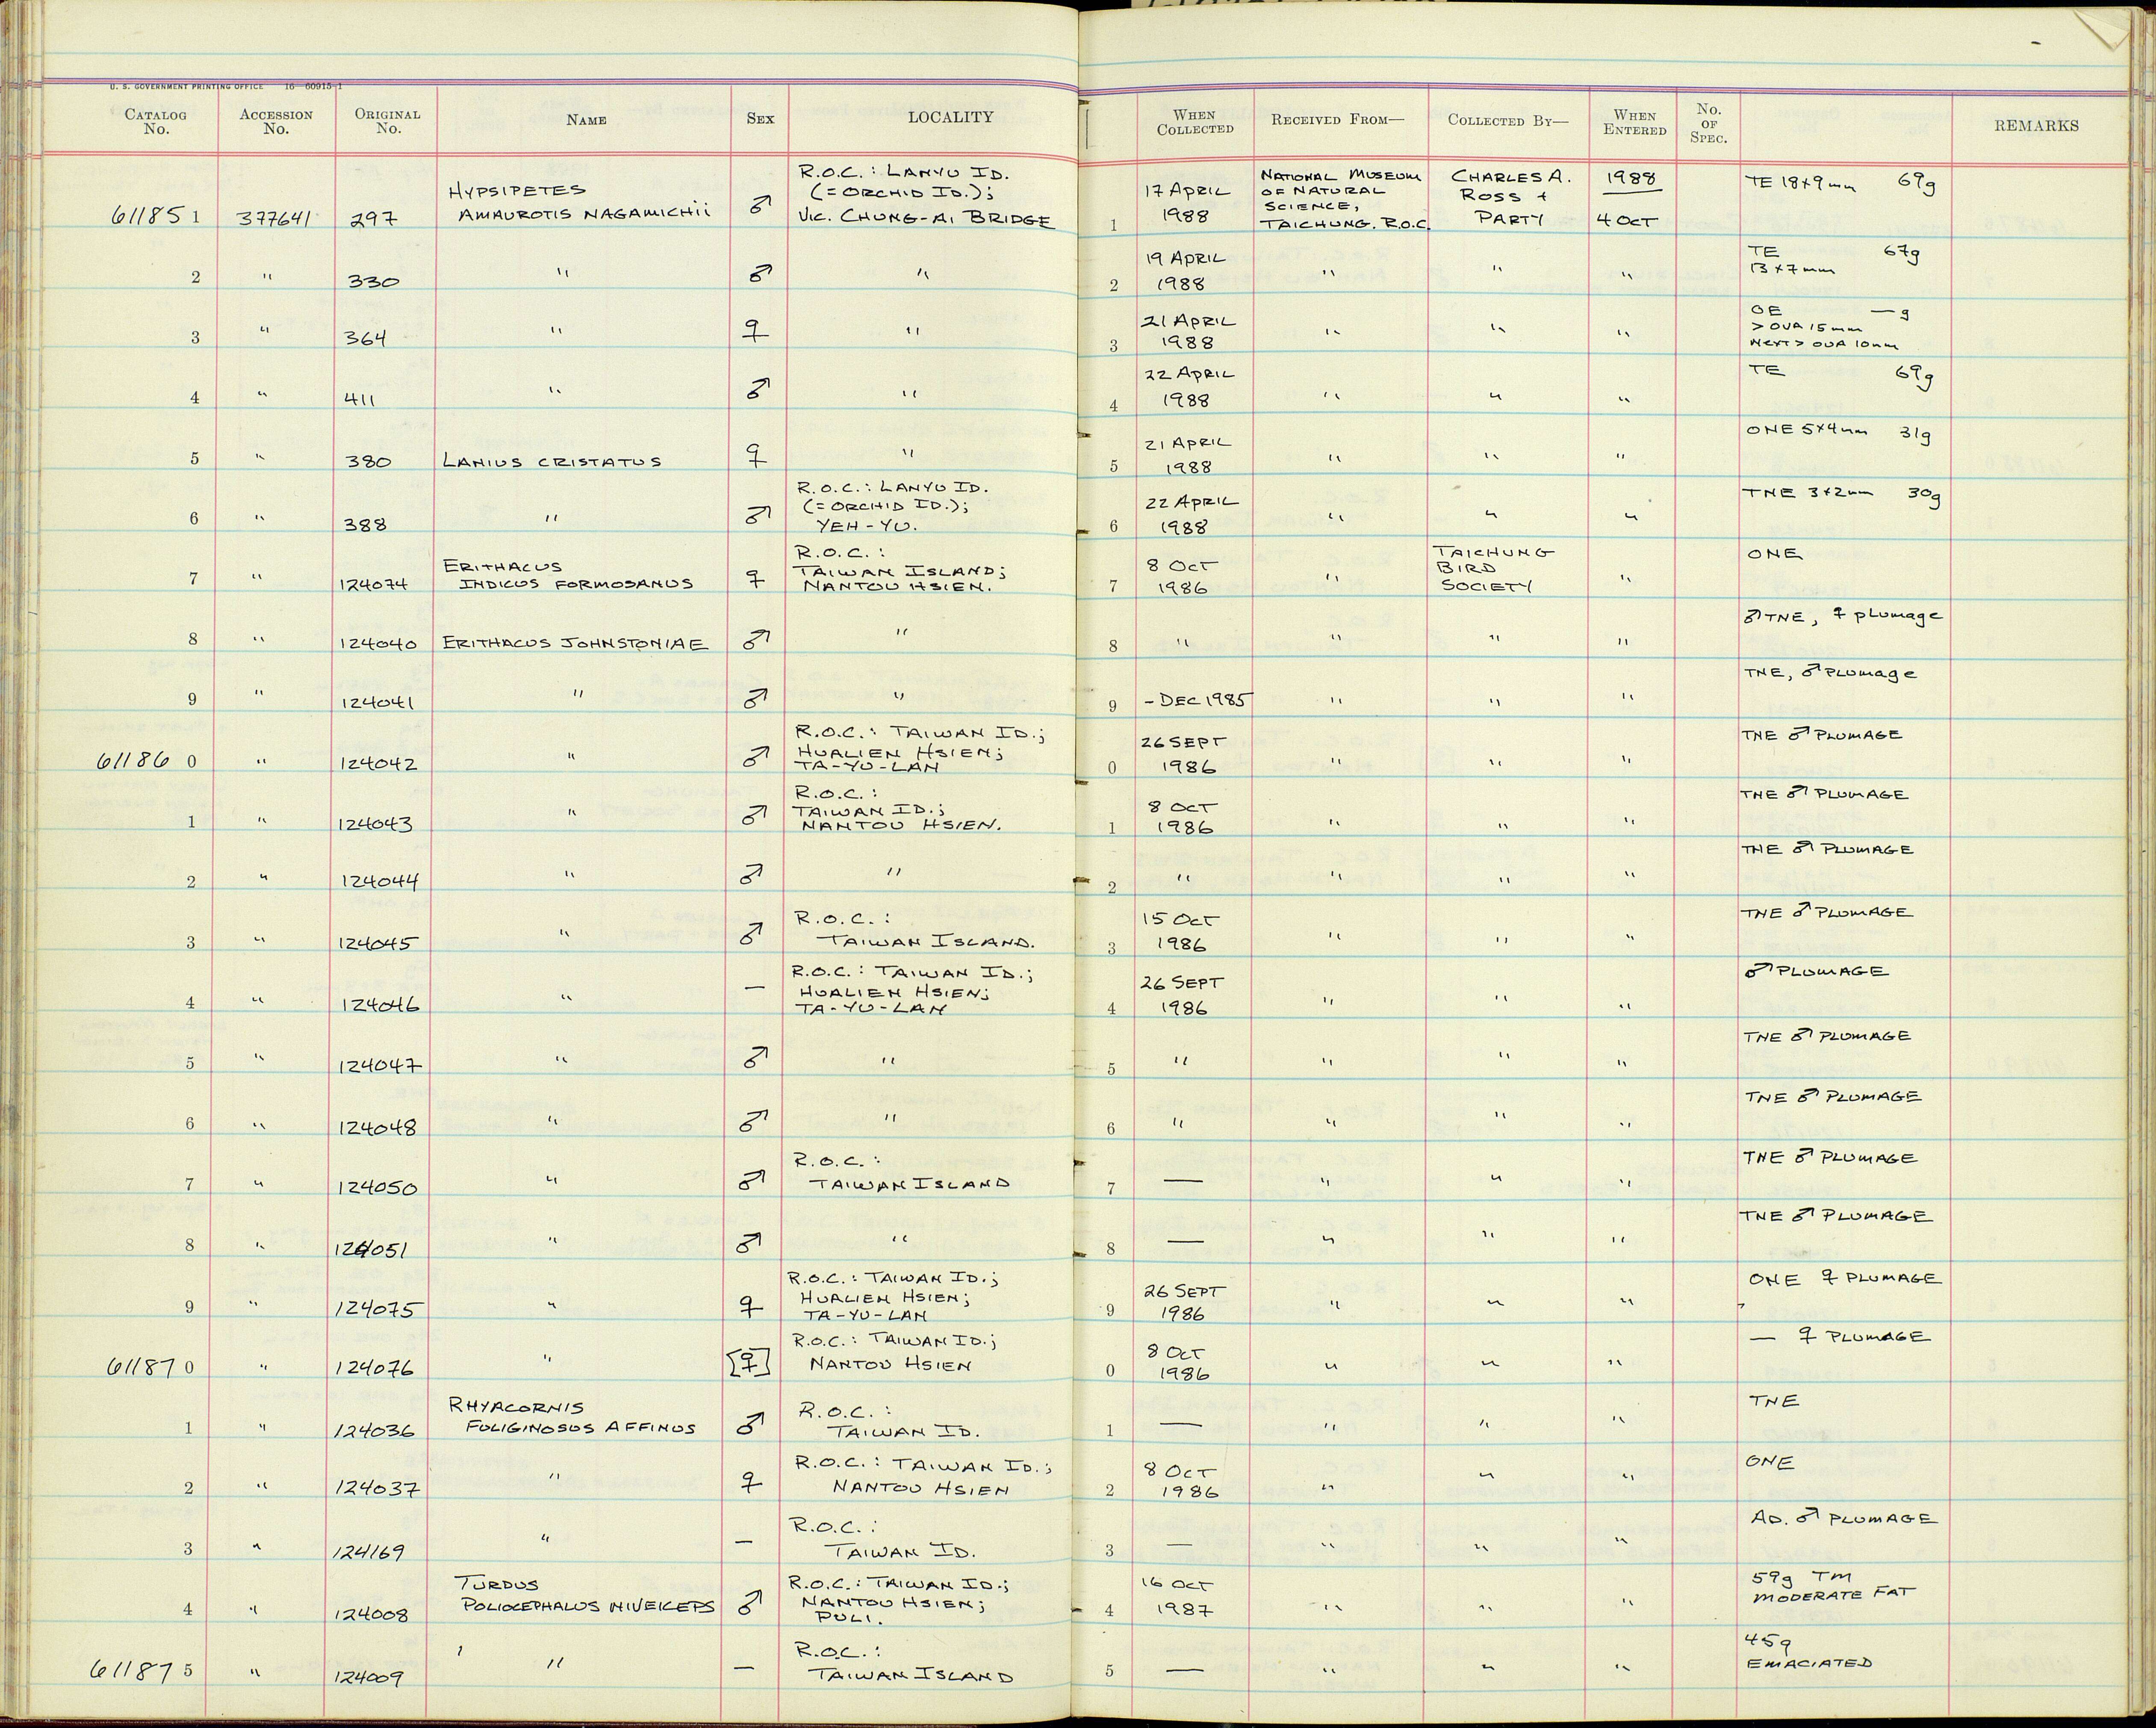 U. S. GOVERNMENT PRINTING OFFICE 16—60915-1
CATALOG No. ACCESSION No. ORIGINAL No. NAME SEX LOCALITY WHEN COLLECTED RECEIVED FROM— COLLECTED BY— WHEN ENTERED No. OF SPEC. REMARKS
611851 377641 297 HYPSIPETES AMAUROTIS NAGAMICHII ♂ R.O.C.: LANYU ID. (= ORCHID ID.); VIC. CHUNG-AI BRIDGE 1 17 APRIL 1988 NATIONAL MUSEUM OF NATURAL SCIENCE, TAICHUNG, R.O.C. CHARLES A. ROSS + PARTY 1988 4 OCT TE 18x9mm 69g
2 " 330 " ♂ " 2 19 APRIL 1988 " " " TE 13x7mm 67g
3 " 364 " ♀ " 3 21 APRIL 1988 " " " OE — g > OVA 15mm NEXT > OVA 10mm
4 " 411 " ♂ " 4 22 APRIL 1988 " " " TE 69g
5 " 380 LANIUS CRISTATUS ♀ " 5 21 APRIL 1988 " " " ONE 5x4mm 31g
6 " 388 " ♂ R.O.C.: LANYU ID. (= ORCHID ID.); YEH-YU. 6 22 APRIL 1988 " " " TNE 3x2mm 30g
7 " 124074 ERITHACUS INDICUS FORMOSANUS ♀ R.O.C.: TAIWAN ISLAND; NANTOU HSIEN. 7 8 OCT 1986 " TAICHUNG BIRD SOCIETY " ONE
8 " 124040 ERITHACUS JOHNSTONIAE ♂ " 8 " " " " ♂ TNE, ♀ plumage
9 " 124041 " ♂ " 9 - DEC 1985 " " " TNE, ♂ Plumage
611860 " 124042 " ♂ R.O.C.: TAIWAN ID.; HUALIEN HSIEN; TA-YU-LAN 0 26 SEPT 1986 " " " TNE ♂ PLUMAGE
1 " 124043 " ♂ R.O.C.: TAIWAN ID.; NANTOU HSIEN. 1 8 OCT 1986 " " " TNE ♂ PLUMAGE
2 " 124044 " ♂ " 2 " " " " TNE ♂ PLUMAGE
3 " 124045 " ♂ R.O.C.: TAIWAN ISLAND. 3 15 OCT 1986 " " " TNE ♂ PLUMAGE
4 " 124046 " — R.O.C.: TAIWAN ID.; HUALIEN HSIEN; TA-YU-LAN 4 26 SEPT 1986 " " " ♂ PLUMAGE
5 " 124047 " ♂ " 5 " " " " TNE ♂ PLUMAGE
6 " 124048 " ♂ " 6 " " " " TNE ♂ PLUMAGE
7 " 124050 " ♂ R.O.C.: TAIWAN ISLAND 7 — " " " TNE ♂ PLUMAGE
8 " 124051 " ♂ " 8 — " " " TNE ♂ PLUMAGE
9 " 124075 " ♀ R.O.C.: TAIWAN ID.; HUALIEN HSIEN; TA-YU-LAN 9 26 SEPT 1986 " " " ONE ♀ PLUMAGE
611870 " 124076 " [♀] R.O.C.: TAIWAN ID.; NANTOU HSIEN 0 8 OCT 1986 " " " — ♀ PLUMAGE
1 " 124036 RHYACORNIS FULIGINOSUS AFFINUS ♂ R.O.C.: TAIWAN ID. 1 — " " " TNE
2 " 124037 " ♀ R.O.C.: TAIWAN ID.; NANTOU HSIEN 2 8 OCT 1986 " " " ONE
3 " 124169 " — R.O.C.: TAIWAN ID. 3 — " " " AD. ♂ PLUMAGE
4 " 124008 TURDUS POLIOCEPHALUS NIVEICEPS ♂ R.O.C.: TAIWAN ID.; NANTOU HSIEN; PULI. 4 16 OCT 1987 " " " 59g TM MODERATE FAT
611875 " 124009 " — R.O.C.: TAIWAN ISLAND 5 — " " " 45g EMACIATED